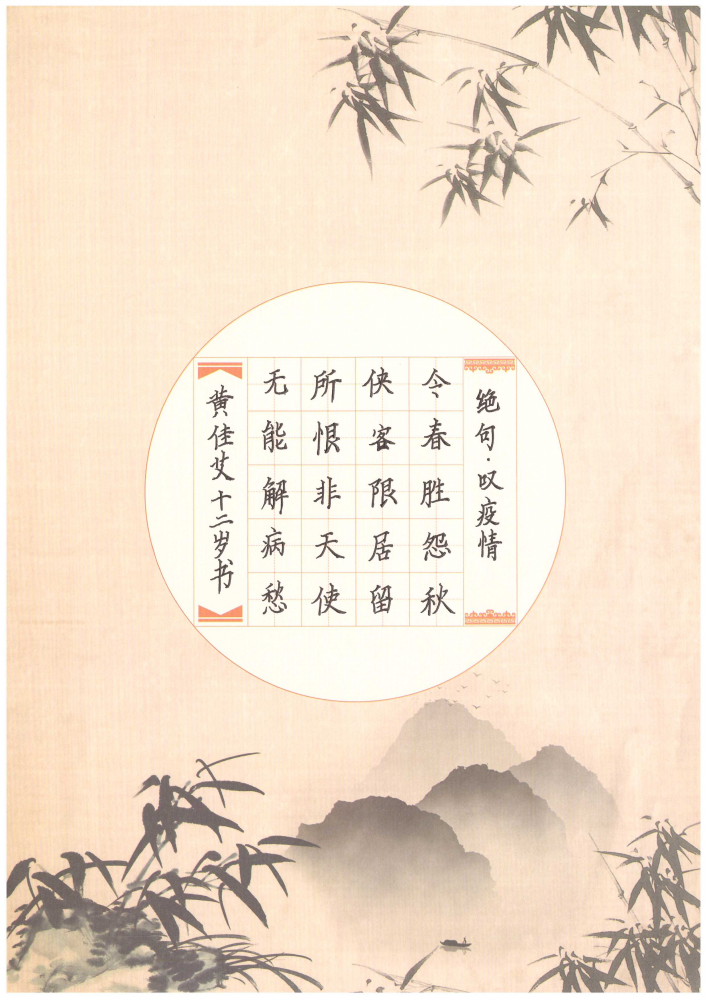 绝句·叹疫情
今春胜怨秋
侠客限居留
所恨非天使
无能解病愁
黄佳艾十二岁书